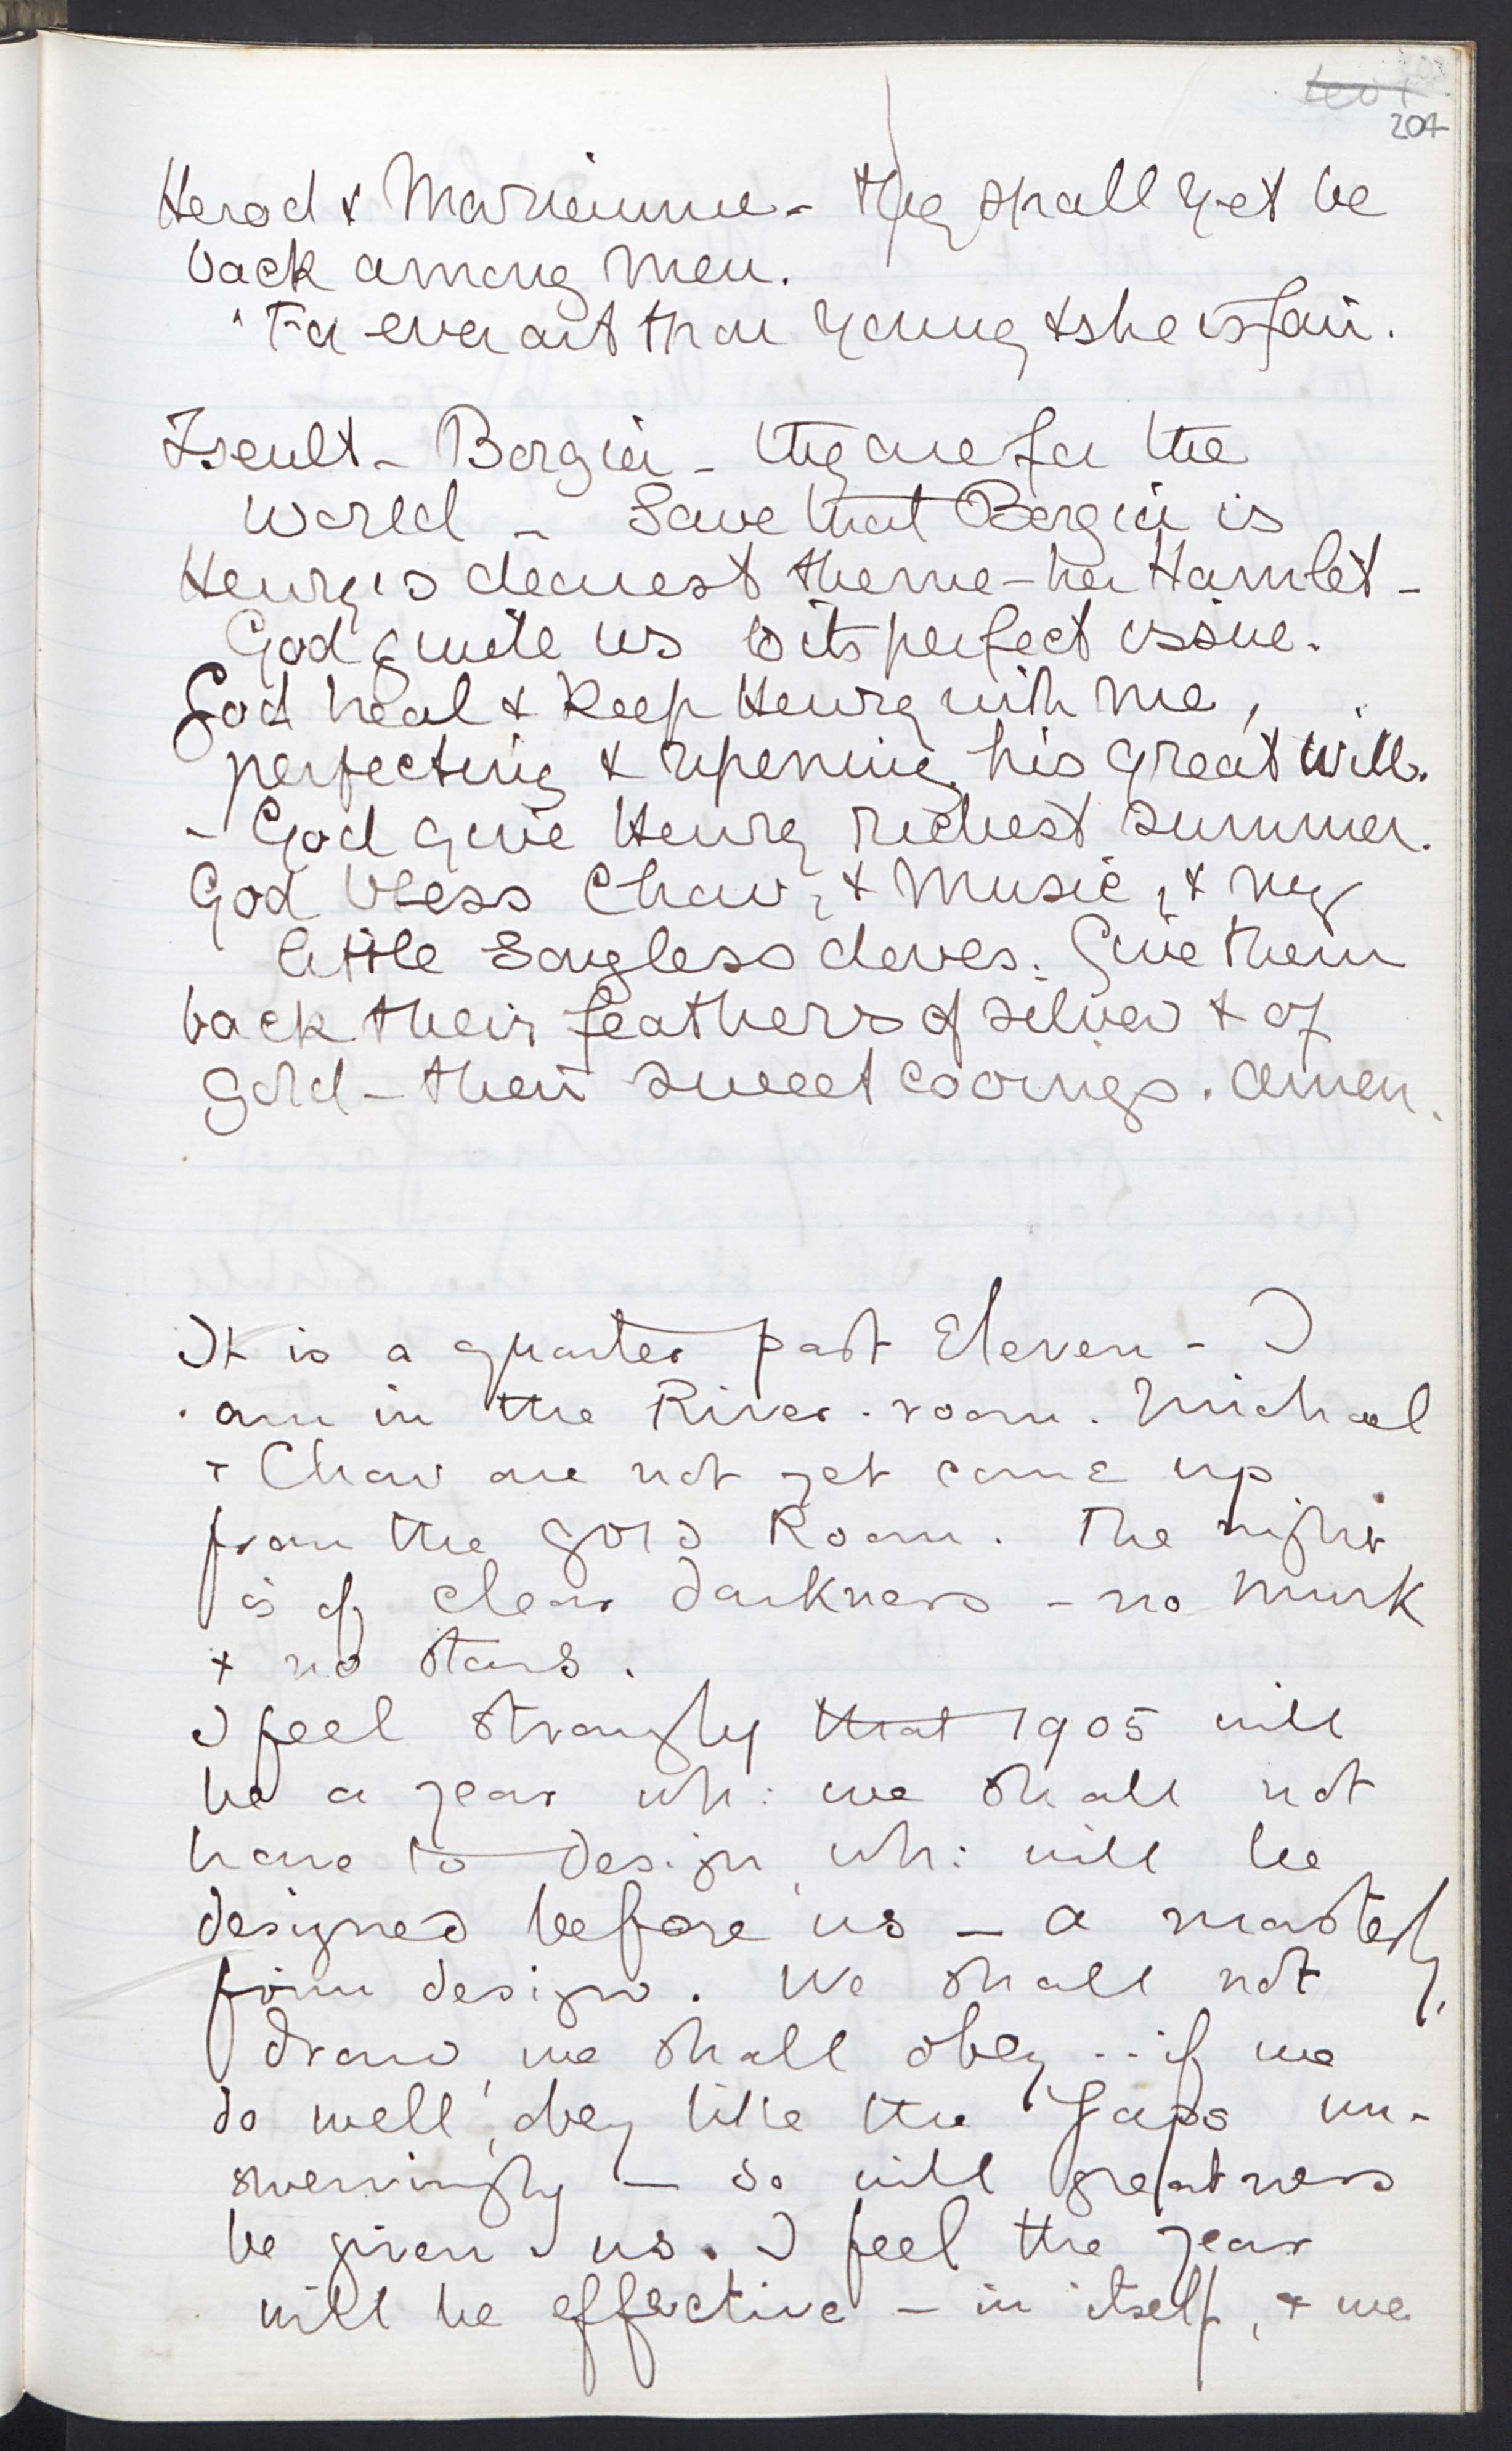 204
Herod & Mariamne - they shall yet be
back among men.
"For ever art thou young & she is fair.
Iseult - Borgia - they are for the
World - Save that Borgia is
Henry's dearest theme - her Hamlet -
God guide us to its perfect issue.
God heal & keep Henry with me,
perfecting & ripening his great will.
- God give Henry richest summer.
God bless Chow, & Music, & my
little songless doves. Give them
back their feathers of silver & of
gold - their sweet cooings. Amen.
It is a quarter past Eleven - I
am in the River-room. Michael
+ Chow are not yet come up
from the Gold Room. The night
is of clear darkness - no murk
+ no stars.
I feel strongly that 1905 will
be a year wh: we shall not
have to design, wh: will be
designed before us - a masterly,
firm design. We shall not
draw, we shall obey .. if we
do well, obey like the Japs un-
swervingly - so will greatness
be given us. I feel the year
will be effective - in itself, + we